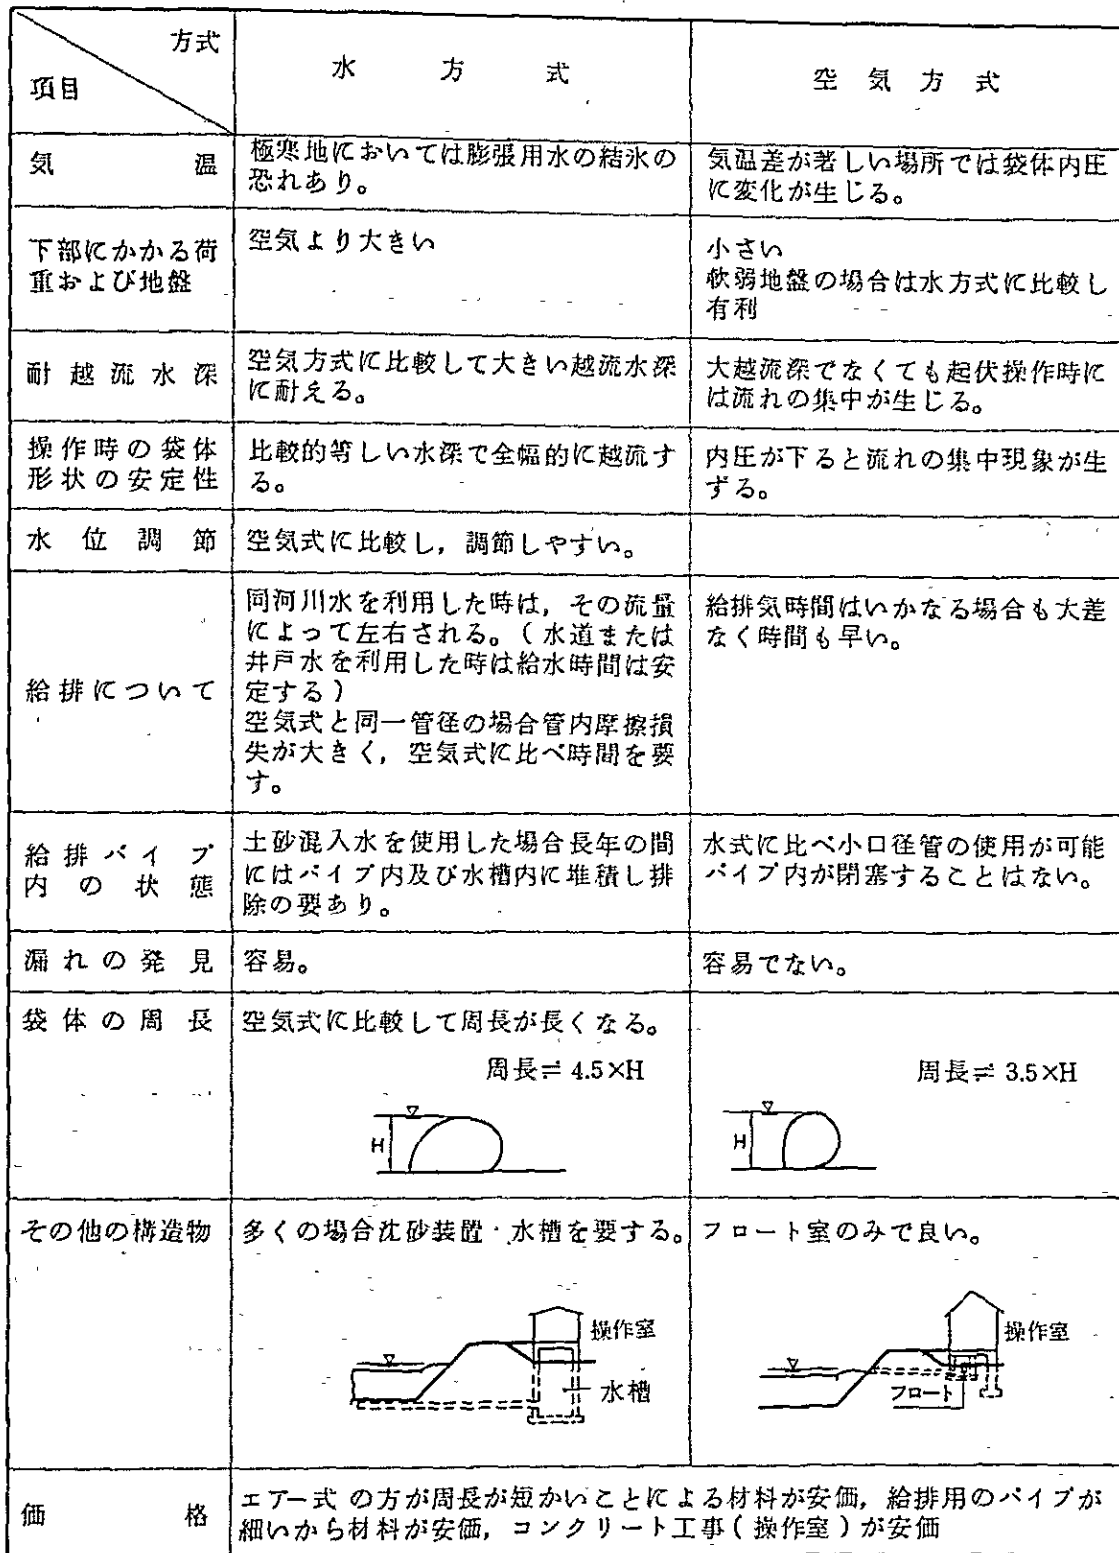 方式
項目
水方式
空気方式
気温
極寒地においては膨張用水の結氷の
恐れあり。
気温差が著しい場所では袋体内圧
に変化が生じる。
下部にかかる荷
重および地盤
空気より大きい
小さい
軟弱地盤の場合は水方式に比較し
有利
耐越流水深
空気方式に比較して大きい越流水深
に耐える。
大越流深でなくても起伏操作時に
は流れの集中が生じる。
操作時の袋体
形状の安定性
比較的等しい水深で全幅的に越流す
る。
内圧が下ると流れの集中現象が生
ずる。
水位調節
空気式に比較し,調節しやすい。
給排について
同河川水を利用した時は,その流量
によって左右される。(水道または
井戸水を利用した時は給水時間は安
定する)
空気式と同一管径の場合管内摩擦損
失が大きく,空気式に比べ時間を要
す。
給排気時間はいかなる場合も大差
なく時間も早い。
給排パイプ
内の状態
土砂混入水を使用した場合長年の間
にはパイプ内及び水槽内に堆積し排
除の要あり。
水式に比べ小口径管の使用が可能
パイプ内が閉塞することはない。
漏れの発見
容易。
容易でない。
袋体の周長
空気式に比較して周長が長くなる。
周長≒4.5×H
H
周長≒3.5×H
H
その他の構造物
多くの場合沈砂装置・水槽を要する。
操作室
水槽
フロート室のみで良い。
操作室
フロート
価格
エアー式の方が周長が短かいことによる材料が安価,給排用のパイプが
細いから材料が安価,コンクリート工事(操作室)が安価